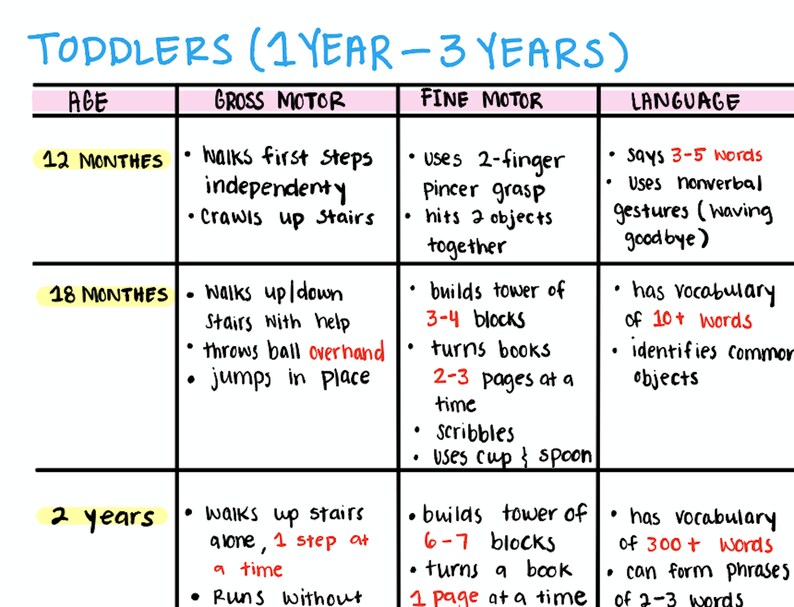 TODDLERS (1 YEAR – 3 YEARS)
AGE GROSS MOTOR FINE MOTOR LANGUAGE
12 MONTHES
• Walks first steps
independenty
• Crawls up stairs
• Uses 2-finger
pincer grasp
• hits 2 objects
together
• says 3-5 words
• Uses nonverbal
gestures (waving
goodbye)
18 MONTHES
• Walks up/down
stairs with help
• throws ball overhand
• jumps in place
• builds tower of
3-4 blocks
• turns books
2-3 pages at a
time
• scribbles
• uses cup & spoon
• has vocabulary
of 10+ words
• identifies common
objects
2 years
• Walks up stairs
alone, 1 step at
a time
• Runs without
• builds tower of
6-7 blocks
• turns a book
1 page at a time
• has vocabulary
of 300+ words
• can form phrases
of 2-3 words